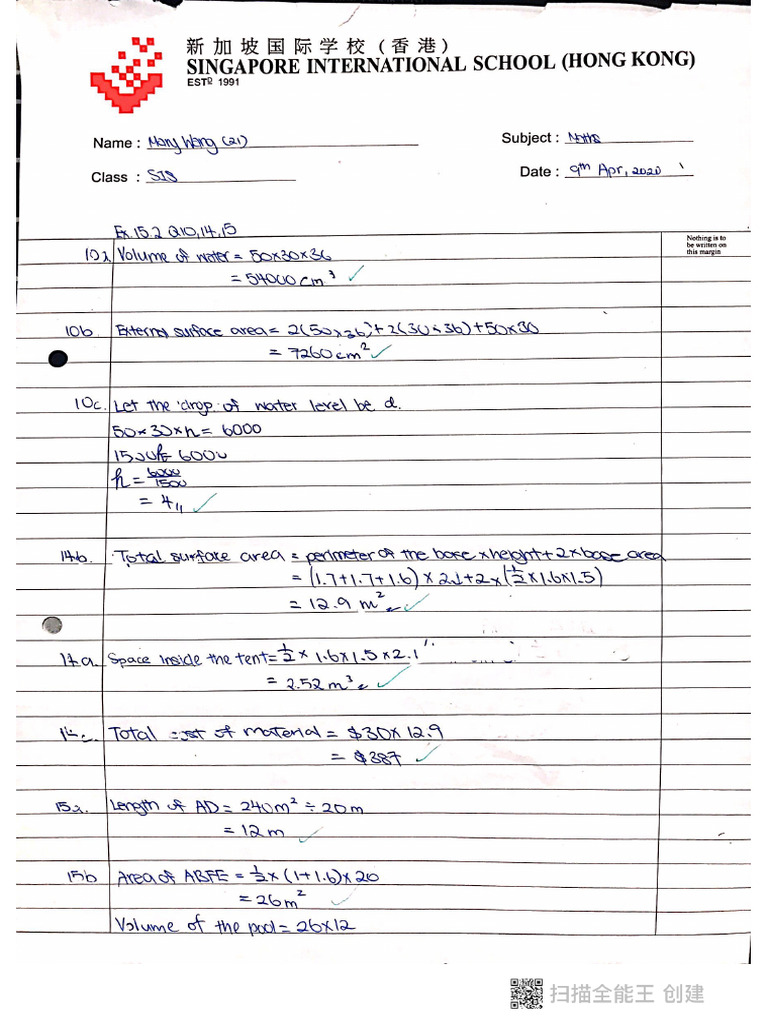 新加坡国际学校(香港)
SINGAPORE INTERNATIONAL SCHOOL (HONG KONG)
ESTD 1991
Name : Mary Wang (21) Subject : Maths
Class : S1S Date : 9th Apr, 2020
Ex.15.2 Q10,14,15
Nothing is to
be written on
this margin
10a Volume of water = 50×30×36
= 54000 cm³ ✓
10b External surface area = 2(50×36)+2(30×36)+50×30
= 7260 cm² ✓
10c. Let the drop of water level be d.
50×30×h = 6000
1500h = 6000
h = 6000/1500
= 4,, ✓
14b. Total surface area = perimeter of the base × height + 2 × base area
= (1.7+1.7+1.6) × 2.1 + 2 × (1/2 × 1.6 × 1.5)
= 12.9 m² ✓
14a. Space inside the tent = 1/2 × 1.6 × 1.5 × 2.1
= 2.52 m³ ✓
14c. Total cost of material = $30 × 12.9
= $387 ✓
15a. Length of AD = 240m² ÷ 20m
= 12 m ✓
15b Area of ABFE = 1/2 × (1+1.6) × 20
= 26 m² ✓
Volume of the pool = 26×12
扫描全能王 创建